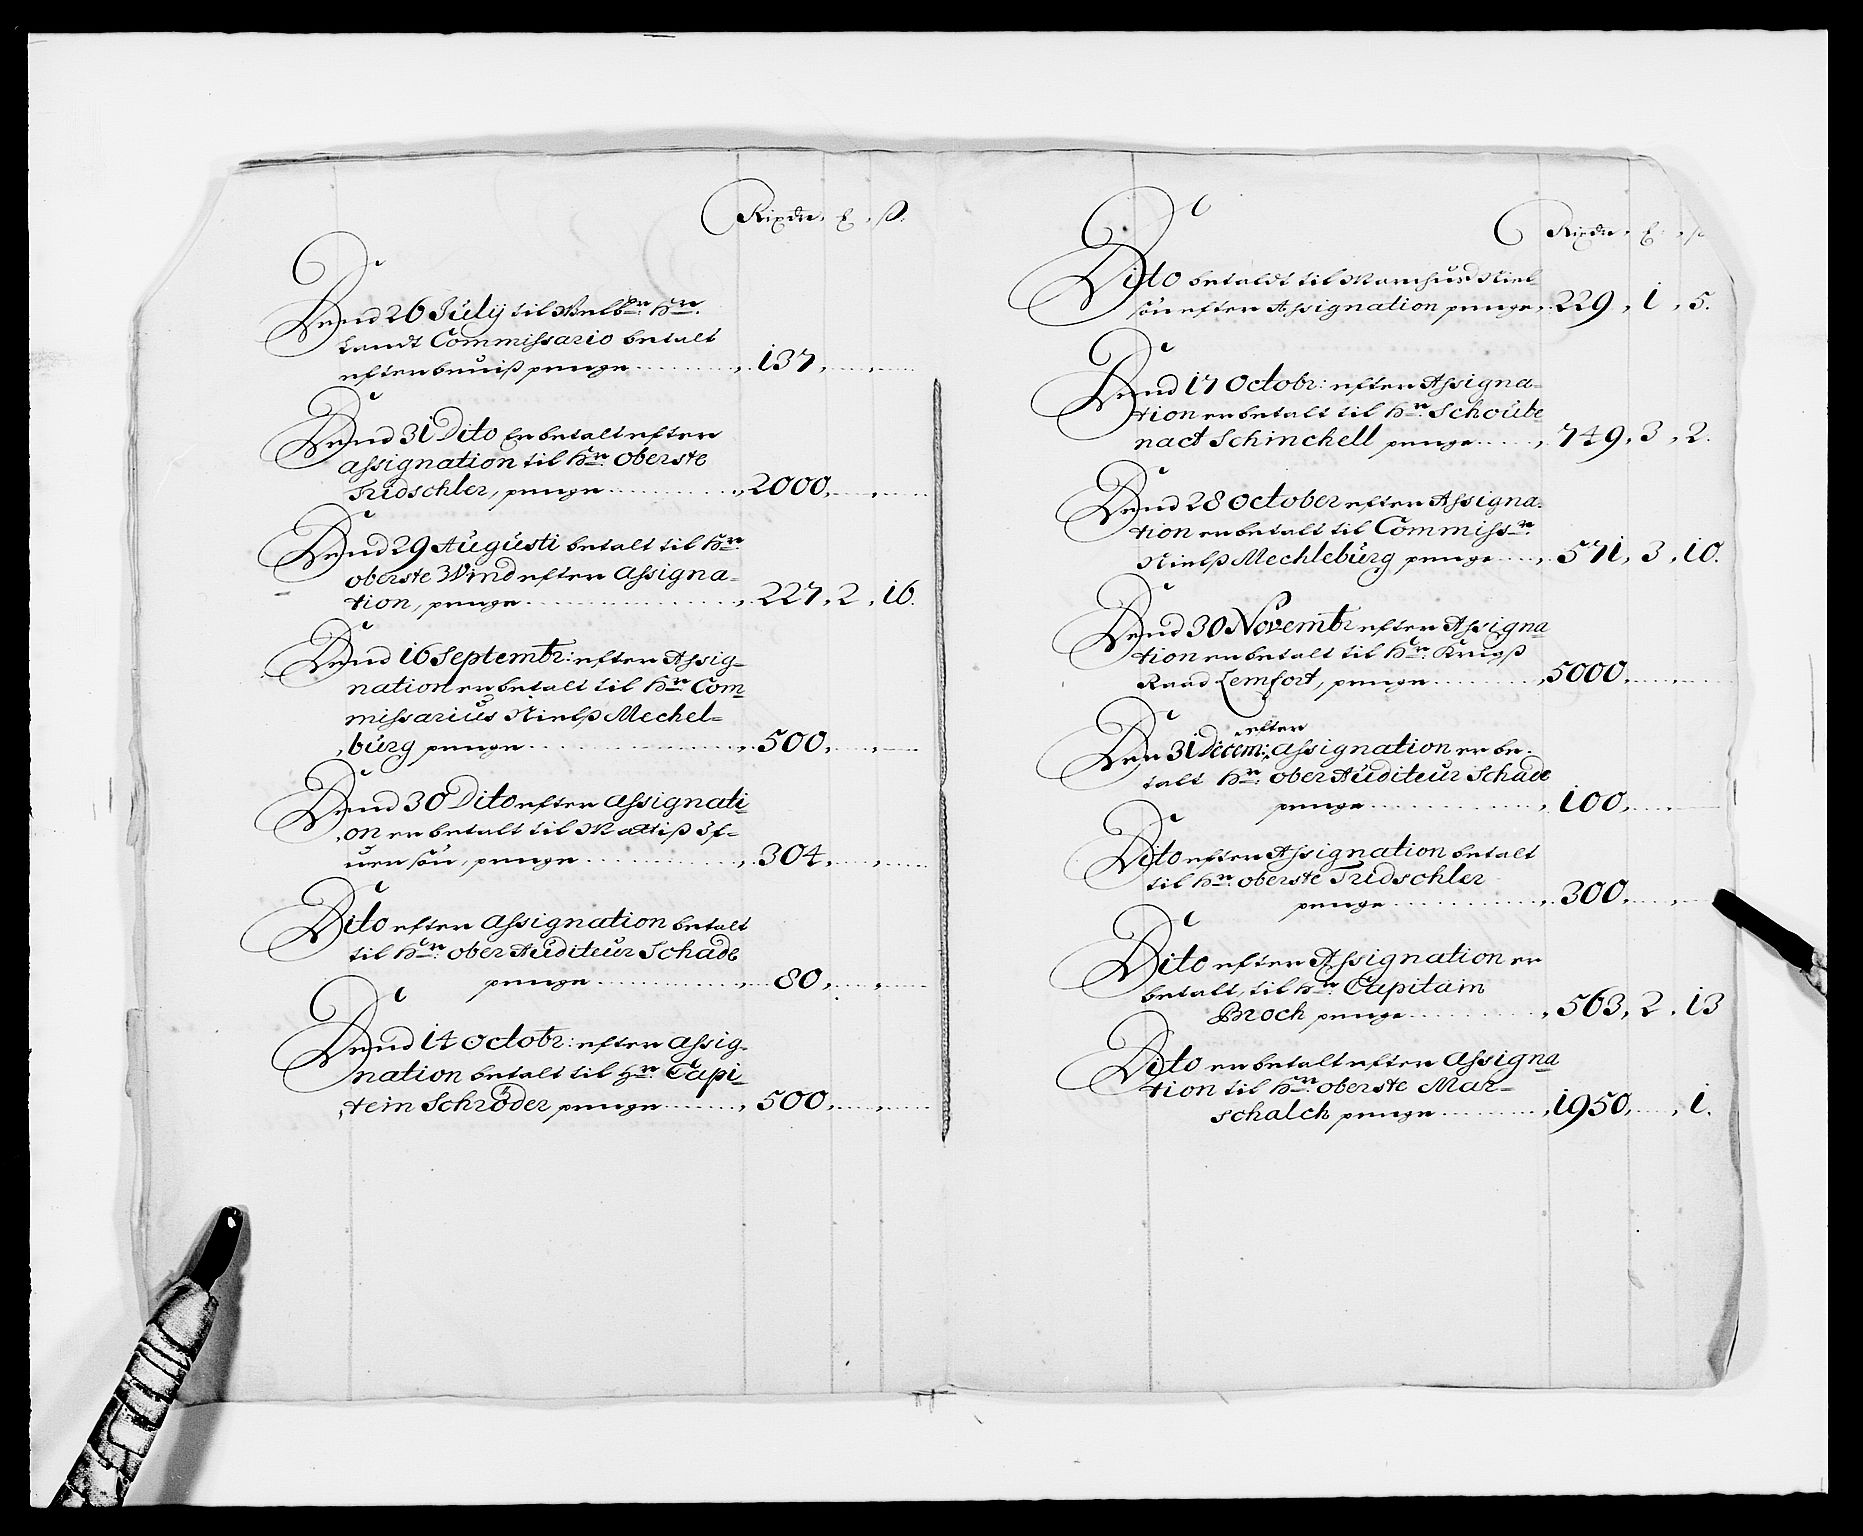 Rixdr. ß.
Dend 26 Julÿ til Welb: Hr:
Landt Commissario betalt
efter beuiß penge 137
Dend 31 Dito Er betalt efter
assignation til Hr: Oberste
Tridschler, penge 2000
Dend 29 Augusti betalt til Hr:
oberste Wind efter assigna=
tion, penge 227, 2, 16.
Dend 16 Septembr: efter Assig=
nation er betalt til Hr: Com
missarius Nielß Mechel=
burg penge 500
Dend 30 Dito efter assignati
on er betalt til Mattiß
sön, penge 304
Dito efter assignation betalt
til Hr: ober Auditeur Schade
penge 80
Dend 14 Octobr: efter assig=
nation betalt til Hr: Capi=
tein Schröder penge 500
Rixdr. ß
Dito betaldt til Niel=
sön efter Assignation penge 229, 1, 5.
Dend 17 Octobr: efter Assigna=
tion er betalt til Hr: Schoute
nact Schinckell penge 749, 3, 2.
Dend 28 October efter Assigna=
tion er betalt til Commissr:
Nielß Mechleburg penge 571, 3, 10.
Dend 30 Novembr efter Assigna
tion er betalt til Hr: Krigß
Raad Lemfort, penge 5000
Den 31 Decem: efter assignation er be=
talt Hr: ober Auditeur Schade
penge 100
Dito efter Assignation betalt
til Hr: oberste Tridschler
penge 300
Dito efter Assignation er
betalt, til Hr: Capitain
Broch penge 563, 2, 13
Dito er betalt efter Assigna
tion til Hr: oberste Mar=
schalch penge 1950, 1.